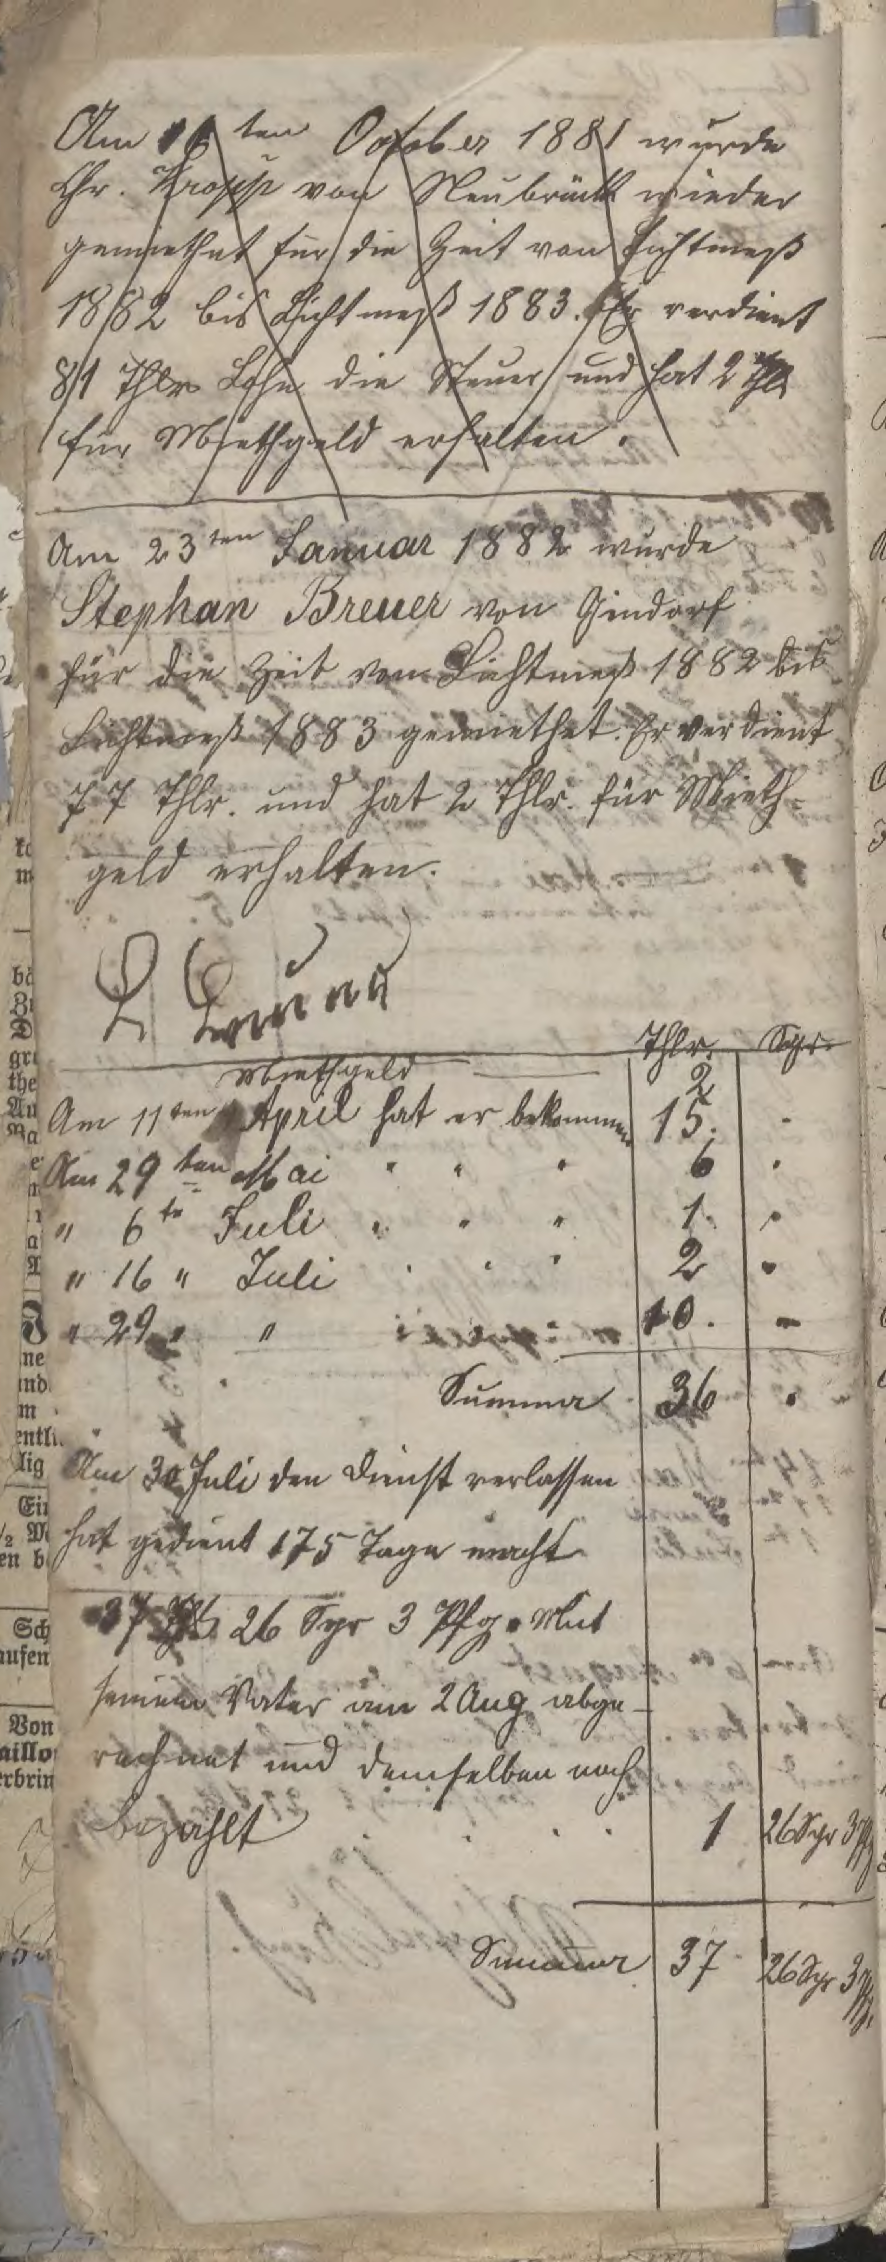 Am 16ten October 1881 wurde
Chr. Kropp von Neubrück wieder
gemiethet für die Zeit von Lichtmeß
1882 bis Lichtmeß 1883. Er verdient
81 Thlr Lohn die Steuer und hat 2 Thlr
für Miethgeld erhalten.
Am 23ten Januar 1882 wurde
Stephan Breuer von Gindorf
für die Zeit von Lichtmeß 1882 bis
Lichtmeß 1883 gemiethet. Er verdient
77 Thlr. und hat 2 Thlr. für Mieth-
geld erhalten.
Thlr. Sgr.
Miethgeld 2
Am 11ten April hat er bekommen 15. -
Am 29ten Mai " " " 6 .
" 6te Juli " " " 1. .
" 16 " Juli " " " 2 .
" 29 " " 10. -
Summa 36 .
Am 30 Juli den Dienst verlassen
hat gedient 175 Tage macht
37 Thlr 26 Sgr 3 Pfg. Mit
seinem Vater am 2 Aug abge-
rechnet und demselben noch
bezahlt . . . . 1 26 Sgr 3 Pfg
Summa 37 26 Sgr 3 Pfg.